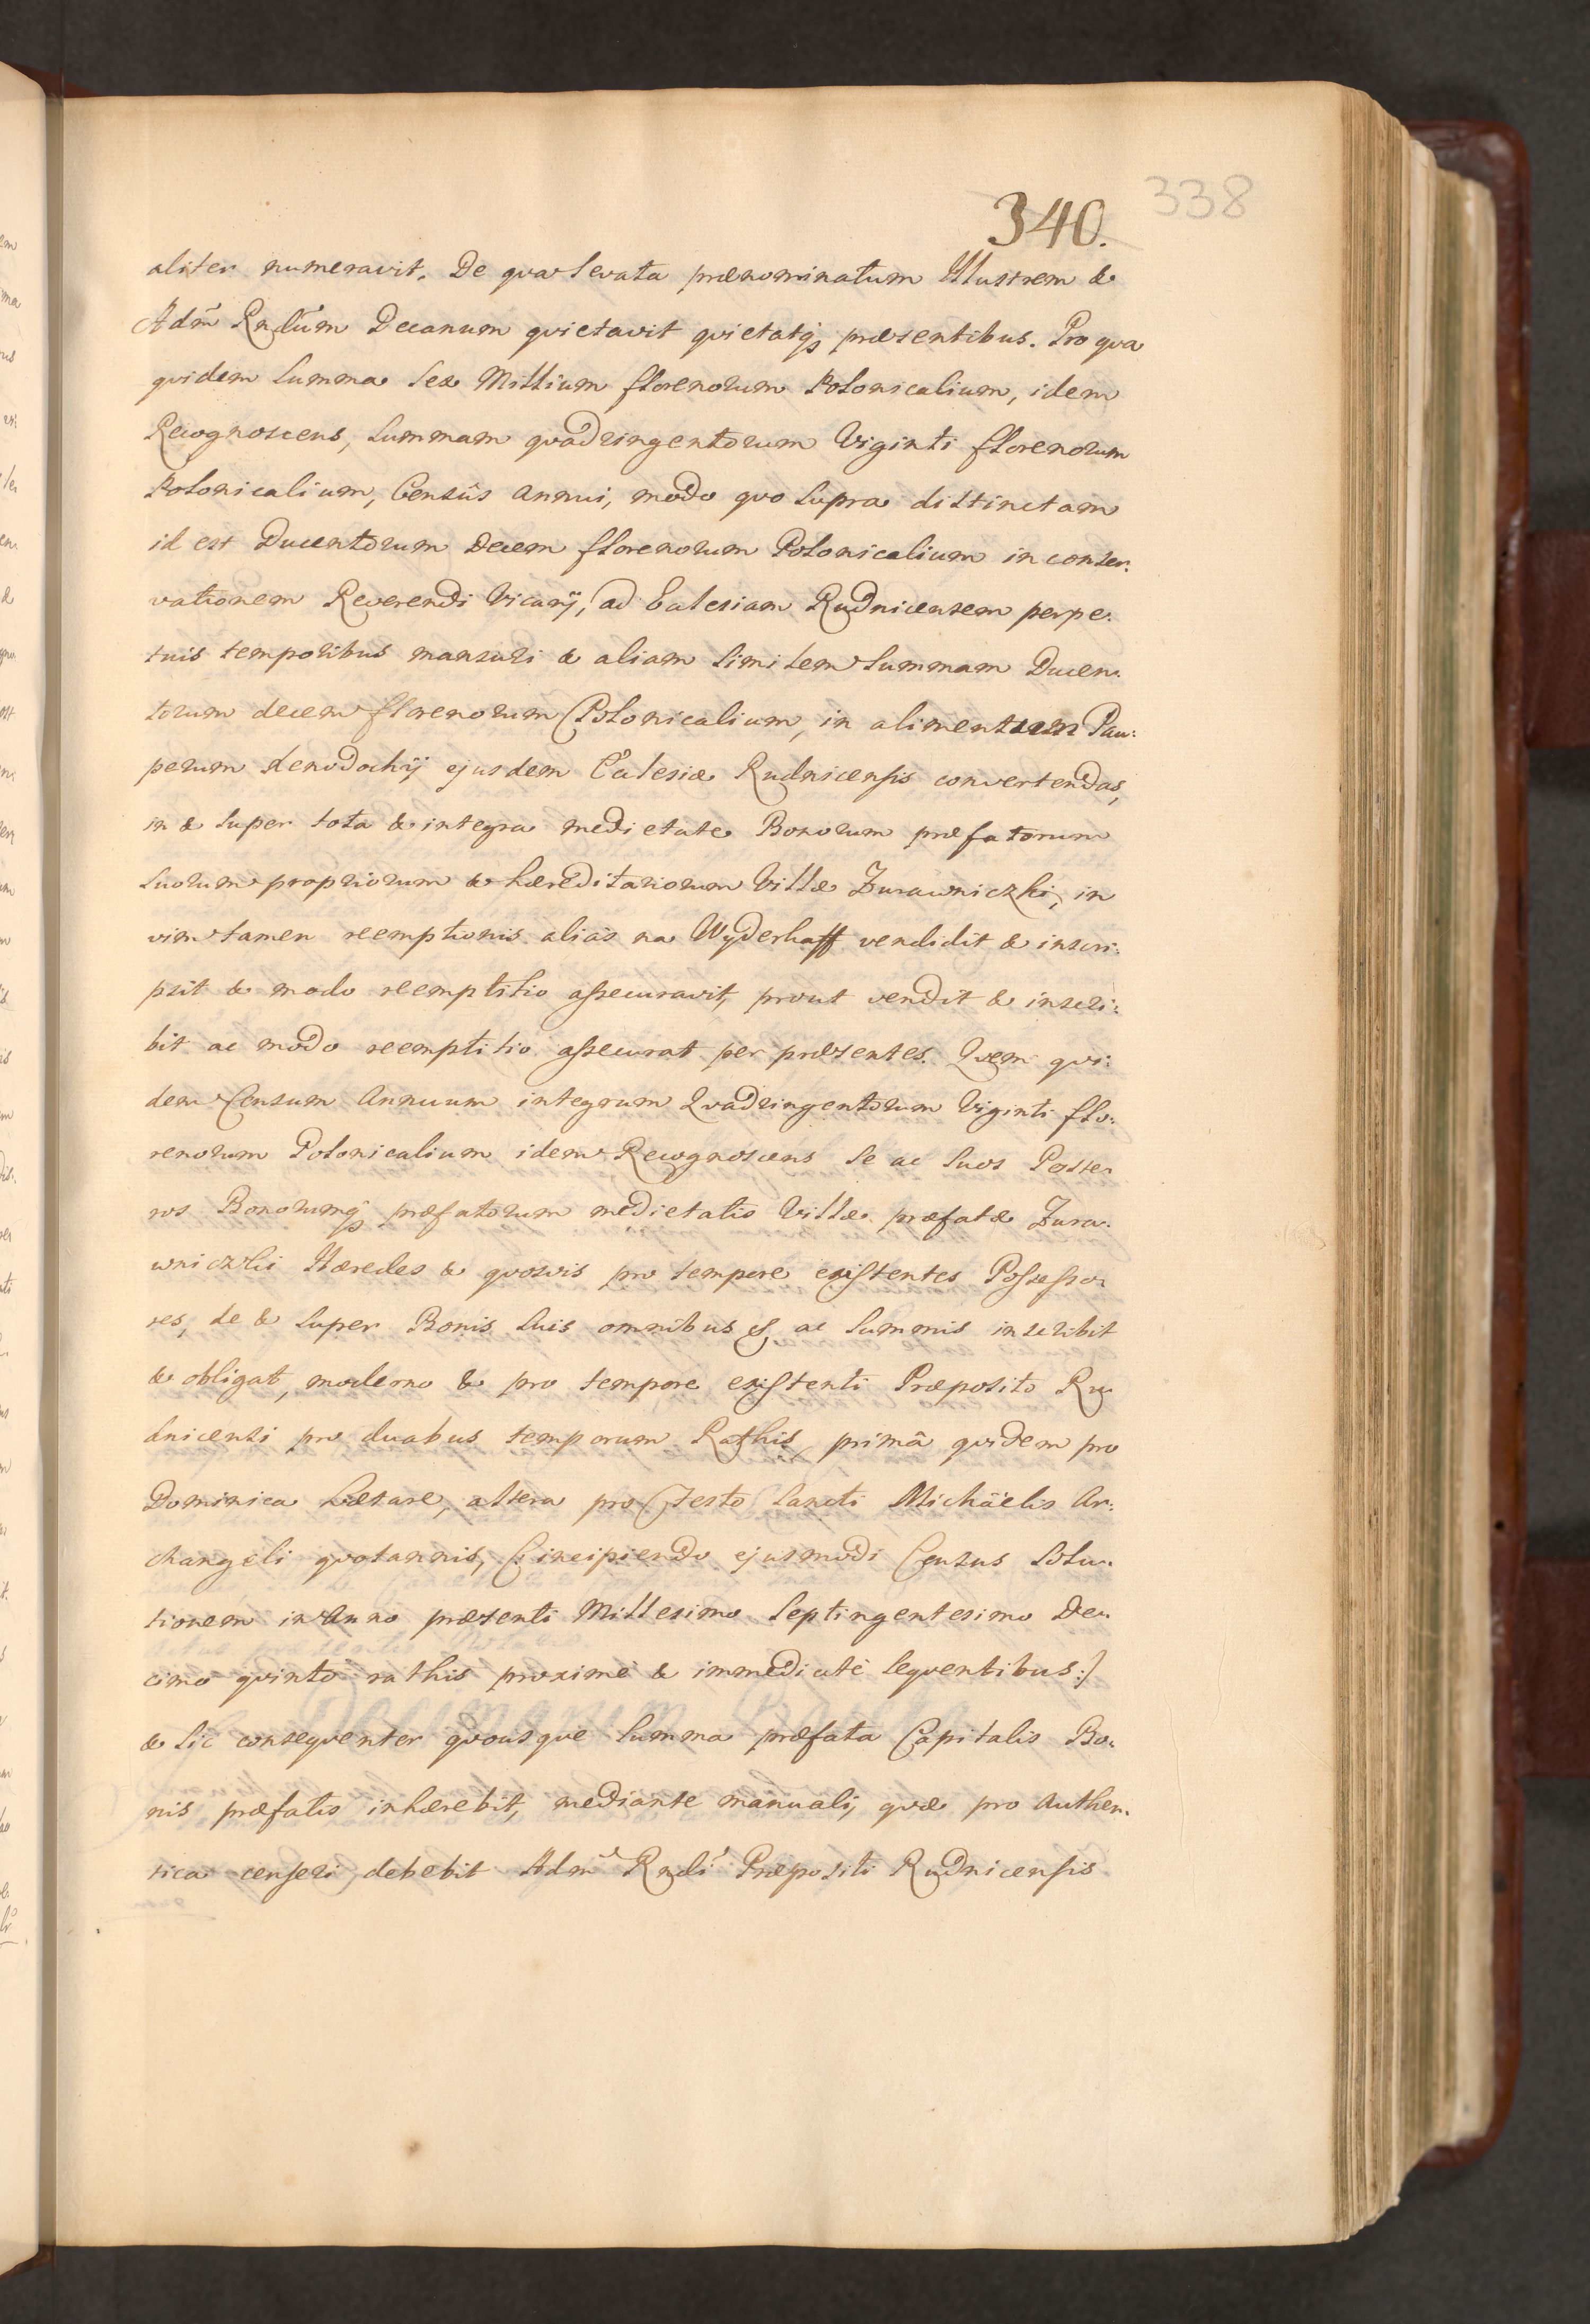 338
340.
aliter numeravit. De qva levata prænominatum Illustrem &
Adm̃ Rndũm Decanum qvietavit qvietatq3 præsentibus. Pro qva
qvidem Summa Sex Millium florenorum Polonicalium, idem
Recognoscens, Summam qvadringentorum Viginti florenorum
Polonicalium, Censûs Annui, modo qvo Supra distinctam
id est Ducentorum Decem florenorum Polonicalium in conser:
vationem Reverendi Vicarij, ad Eclesiam Rudnicensem perpe:
tuis temporibus mansuri & aliam Similem Summam Ducen:
torum decem florenorum Polonicalium, in alimentum Pau:
perum Xenodochij ejusdem Eclesiæ Rudnicensis convertendas,
in & Super tota & integra medietate Bonorum præfatorum
Suorum propriorum & hæreditariorum Villæ Zurawniczki, in
vim tamen reemptionis alias na Wyderkaff vendidit & inscri:
psit & modo reemptitio assecuravit, prout vendit & inscri:
bit ac modo reemptitio assecurat per præsentes. Qvem qvi:
dem Censum Annuum integrum Qvadringentorum Viginti flo:
renorum Polonicalium idem Recognoscens Se ac Suos Poste:
ros Bonorumq3 præfatorum medietatis Villæ præfatæ Zura:
wniczki Hæredes & qvosvis pro tempore existentes Possesso:
res, de & Super Bonis Suis omnibus ac Summis inscribit
& obligat, moderno & pro tempore existenti Præposito Ru:
dnicensi pro duabus temporum Rathis primâ qvidem pro
Dominica Lætare, altera pro Festo Sancti Michäelis Ar:
changeli qvotannis, (: incipiendo ejusmodi Census Solu:
tionem in Anno præsenti Millesimo Septingentesimo De:
cimo qvinto rathis proximè & immediatè Seqventibus :)
& Sic conseqventer qvousqve Summa præfata Capitalis Bo:
nis præfatis inhærebit, mediante manuali, qvæ pro Authen:
tica censeri debebit Adm̃ Rndi Præpositi Rudnicensis